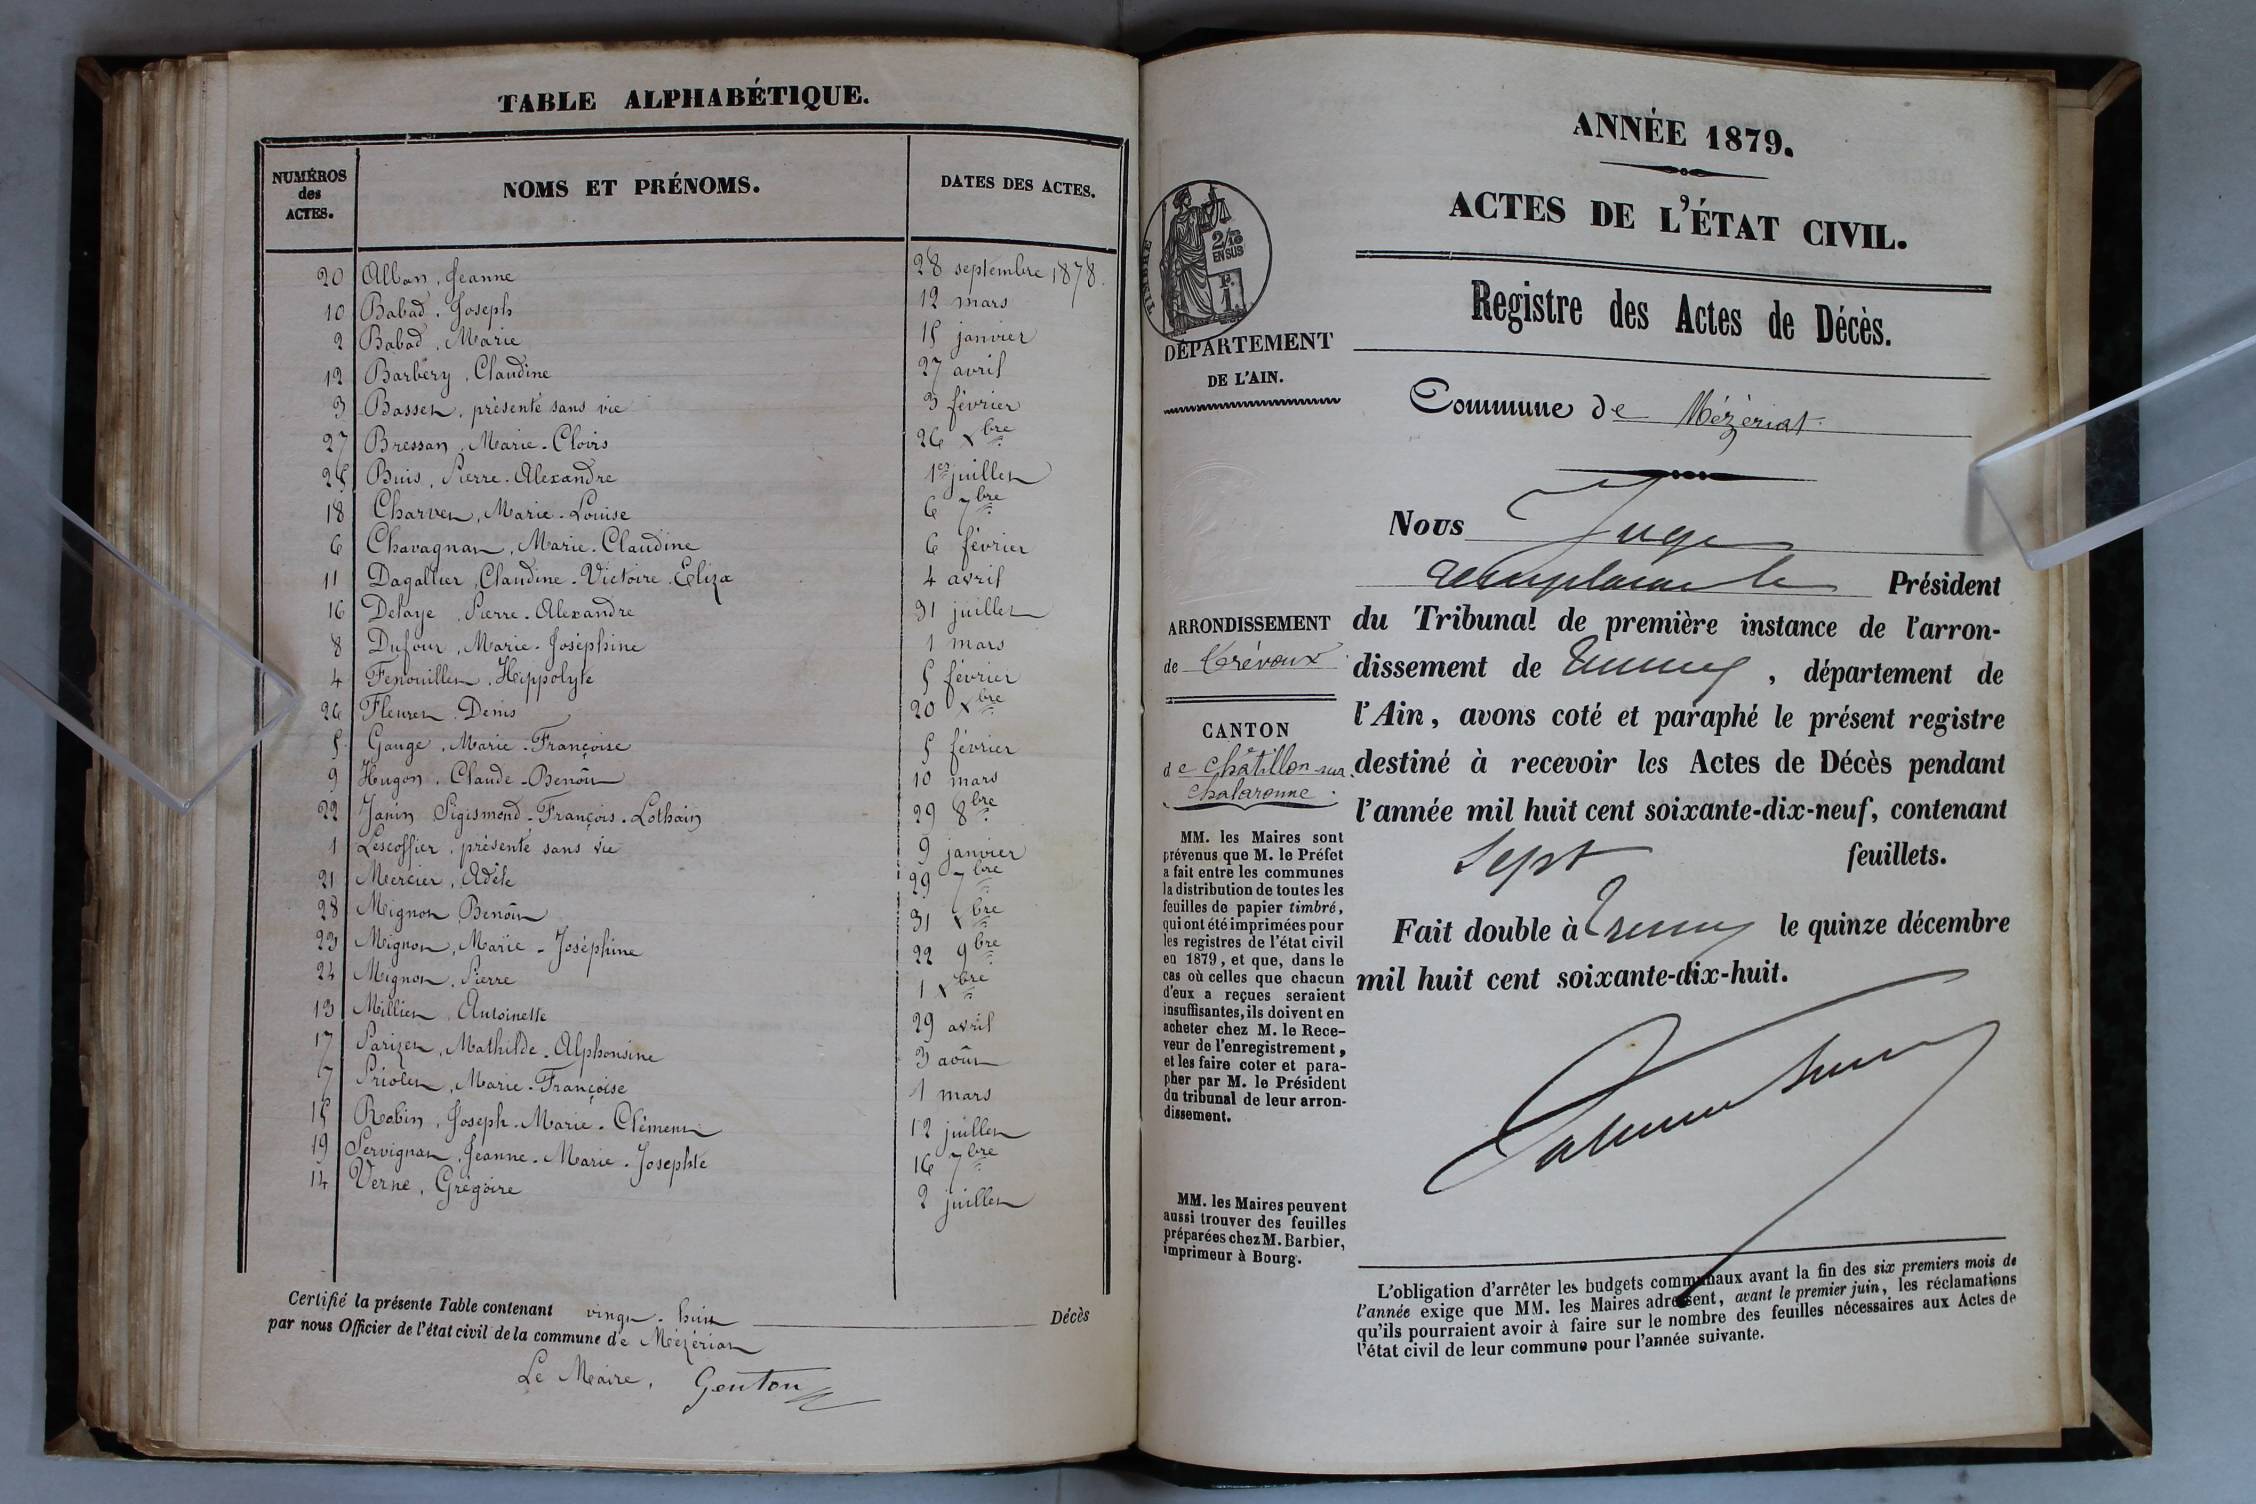 TABLE ALPHABÉTIQUE.
NUMÉROS des ACTES. NOMS ET PRÉNOMS. DATES DES ACTES.
20 Alban, Jeanne 28 septembre 1878.
10 Babad, Joseph 12 mars
2 Babad, Marie 15 janvier
12 Barbery, Claudine 27 avril
3 Basset, présenté sans vie 3 février
27 Bressan, Marie-Clovis 26 Xbre
25 Buis, Pierre-Alexandre 1er juillet
18 Charvet, Marie-Louise 6 7bre
6 Chavagnat, Marie-Claudine 6 février
11 Dagallier, Claudine-Victoire-Eliza 4 avril
16 Delaye, Pierre-Alexandre 31 juillet
8 Dufour, Marie-Joséphine 1 mars
4 Fenouillet, Hippolyte 5 février
26 Fleuret, Denis 20 Xbre
5 Gauge, Marie-Françoise 5 février
9 Hugon, Claude-Benoît 10 mars
22 Janin Sigismond-François-Lothain 29 8bre
1 Lescoffier, présenté sans vie 9 janvier
21 Mercier, Adèle 29 7bre
28 Mignot, Benoît 31 Xbre
23 Mignot, Marie-Joséphine 22 9bre
24 Mignot, Pierre 1 Xbre
13 Milliet, Antoinette 29 avril
17 Parizet, Mathilde-Alphonsine 3 août
7 Priolet, Marie-Françoise 1 mars
15 Robin, Joseph-Marie-Clément 12 juillet
19 Servignat, Jeanne-Marie-Josephte 16 7bre
14 Verne, Grégoire 2 juillet
Certifié la présente Table contenant vingt-huit Décès
par nous Officier de l'état civil de la commune de Mézériat
Le Maire, Genton
ANNÉE 1879.
ACTES DE L'ÉTAT CIVIL.
Registre des Actes de Décès.
TIMBRE
2/10
EN SUS
F.
1.
DÉPARTEMENT
DE L'AIN.
Commune de Mézériat
ARRONDISSEMENT
de Trévoux
CANTON
de Châtillon-sur
Chalaronne.
MM. les Maires sont
prévenus que M. le Préfet
a fait entre les communes
la distribution de toutes les
feuilles de papier timbré,
qui ont été imprimées pour
les registres de l'état civil
en 1879, et que, dans le
cas où celles que chacun
d'eux a reçues seraient
insuffisantes, ils doivent en
acheter chez M. le Rece-
veur de l'enregistrement,
et les faire coter et para-
pher par M. le Président
du tribunal de leur arron-
dissement.
MM. les Maires peuvent
aussi trouver des feuilles
préparées chez M. Barbier,
imprimeur à Bourg.
Nous Juge
remplaçant le Président
du Tribunal de première instance de l'arron-
dissement de Trévoux, département de
l'Ain, avons coté et paraphé le présent registre
destiné à recevoir les Actes de Décès pendant
l'année mil huit cent soixante-dix-neuf, contenant
Sept feuillets.
Fait double à Trévoux le quinze décembre
mil huit cent soixante-dix-huit.
L'obligation d'arrêter les budgets communaux avant la fin des six premiers mois de
l'année exige que MM. les Maires adressent, avant le premier juin, les réclamations
qu'ils pourraient avoir à faire sur le nombre des feuilles nécessaires aux Actes de
l'état civil de leur commune pour l'année suivante.